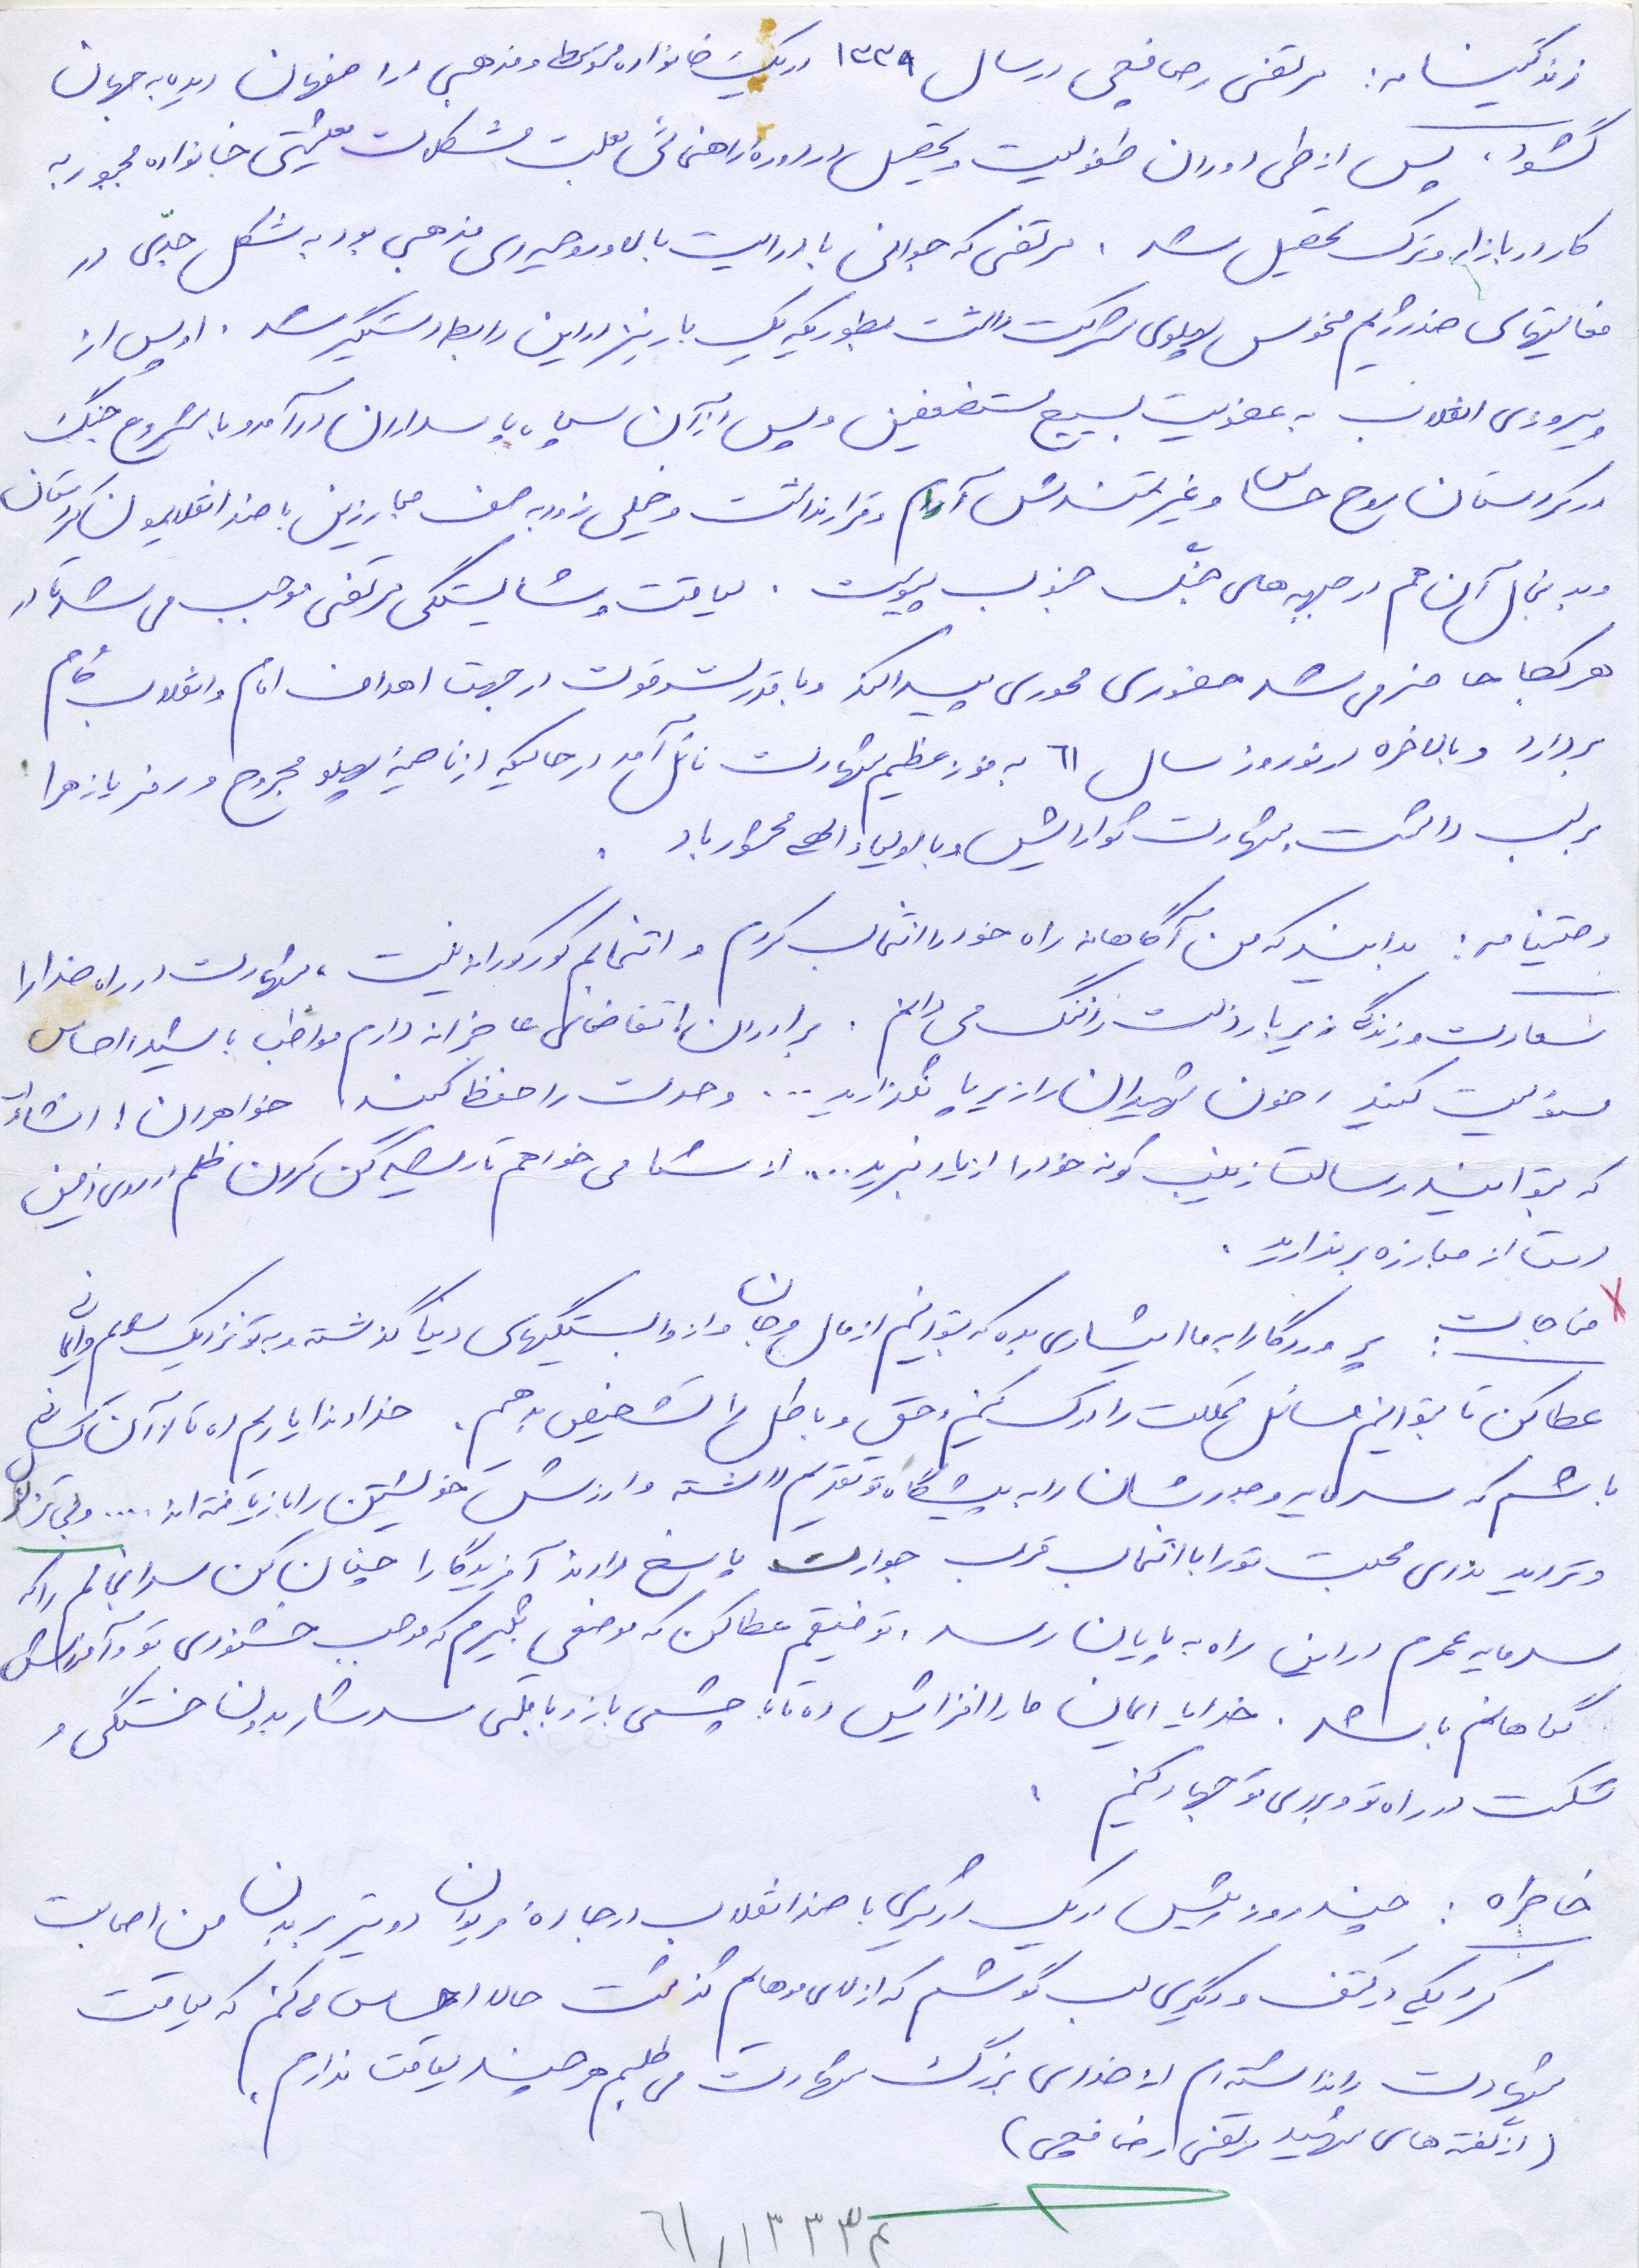 زندگینامه: مرتضی رضا قیچی در سال ۱۳۳۹ در یک خانواده متوسط و مذهبی در اصفهان دیده به جهان
گشود، پس از طی دوران طفولیت و تحصیل در دوره راهنمائی بعلت مشکلات معیشتی خانواده مجبور به
کار در بازار و ترک تحصیل شد. مرتضی که جوانی با درایت بالا و روحیه‌ای مذهبی بود به شکل جدّی در
فعالیتهای ضد رژیم منحوس پهلوی شرکت داشت بطوریکه یک بار نیز در این رابطه دستگیر شد. او پس از
پیروزی انقلاب به عضویت بسیج مستضعفین و پس از آن سپاه پاسداران درآمد و با شروع جنگ
در کردستان روح حساس و غیرتمندش آرام و قرار نداشت و خیلی زود به صف مبارزین با ضد انقلابیون کردستان
و به دنبال آن هم در جبهه‌های جنگ جنوب پیوست. لیاقت و شایستگی مرتضی موجب می‌شد تا در
هر کجا حاضر می‌شد حضوری محوری پیدا کند و با قدرت و قوت در جهت اهداف امام و انقلاب گام
بردارد و بالاخره در نوروز سال ۶۱ به فوز عظیم شهادت نائل آمد در حالیکه از ناحیه پهلو مجروح و رمز یا زهرا
بر لب داشت. شهادت گوارایش و با اولیاء الله محشور باد.
وصیتنامه: بدانید که من آگاهانه راه خود را انتخاب کردم و انتخابم کورکورانه نیست، شهادت در راه خدا را
سعادت و زندگی زیر بار ذلت را ننگ می دانم. برادران، تقاضای عاجزانه دارم مواظب باشید، احساس
مسؤلیت کنید، خون شهیدان را زیر پا نگذارید .... وحدت را حفظ کنید خواهران! انشاءالله
که بتوانید رسالت زینب گونه خود را از یاد نبرید .... از شما می خواهم تا ریشه کن کردن ظلم در روی زمین
دست از مبارزه برندارید.
مناجات: پروردگارا به ما ایثاری بده که بتوانیم از مال و جان و از وابستگیهای دنیا گذشته و به تو نزدیک شویم و ایمانی
عطا کن تا بتوانیم مسائل مملکت را درک کنیم و حق و باطل را تشخیص بدهیم. خداوندا یاریم ده تا از آن کسانی
باشم که سرمایه وجودشان را به پیشگاه تو تقدیم داشته و ارزش خویشتن را بازیافته‌اند .... و بی تزلزل
و تردید ندای محبت تو را با انتخاب قرب جوارت پاسخ دادند آفریدگارا چنان کن سرانجامم را که
سرمایه عمرم در این راه به پایان رسد. توفیقم عطا کن که موضعی بگیرم که موجب خشنودی تو و آمرزش
گناهانم باشد. خدایا ایمان ما را افزایش ده تا با چشمی باز و با قلبی سرشار بدون خستگی و
شکست در راه تو و برای تو جهاد کنیم.
خاطره: چند روز پیش در یک درگیری با ضد انقلاب در جاده مریوان دو تیر بر بدن من اصابت
کرد یکی در کتف و دیگری لب گوشم که از لای موهایم گذشت حالا احساس می‌کنم که لیاقت
شهادت را نداشته‌ام از خدای بزرگ شهادت می طلبم هر چند لیاقت ندارم.
(از گفته‌های شهید مرتضی رضا قیچی)